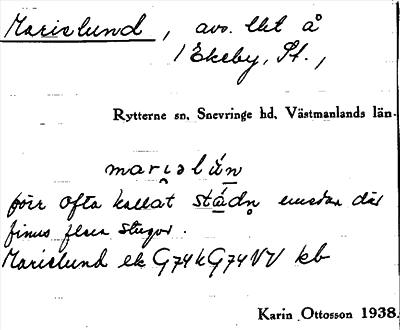 Marielund, avs. lht å
/ Ekeby, St.,
Rytterne sn. Snevringe hd. Västmanlands län.
marɩəlún
förr ofta kallat stádn emedan där
finns flera stugor.
Marielund ek G74k G74VV kb
Karin Ottosson 1938.